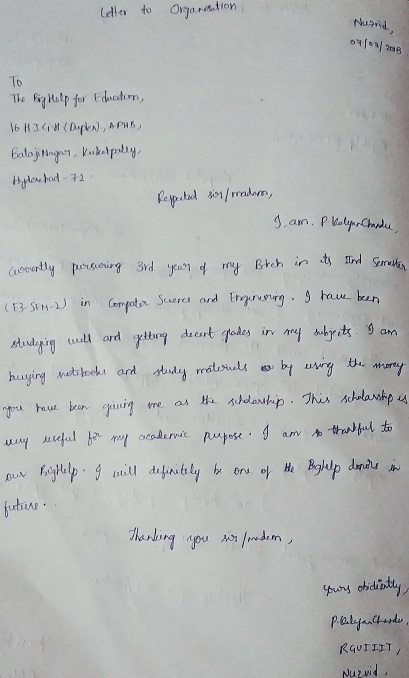 Letter to Organisation
Nuzvid,
07/03/2018
To
The BigHelp for Education,
16 H I G H (Duplex), APHB,
Balaji Nagar, Kukatpally,
Hyderabad-72.
Respected sir/madam,
I am P. Kalyan Chandu,
currently pursuing 3rd year of my Btech in its IInd Semester
(E3-SEM-2) in Computer Science and Engineering. I have been
studying well and getting decent grades in my subjects. I am
buying notebooks and study materials by using the money
you have been giving me as the scholarship. This scholarship is
very useful for my academic purpose. I am so thankful to
our BigHelp. I will definitely be one of the BigHelp donors in
future.
Thanking you sir/madam,
Yours obidiently,
P. Kalyan Chandu,
RGUIIIT,
Nuzvid.